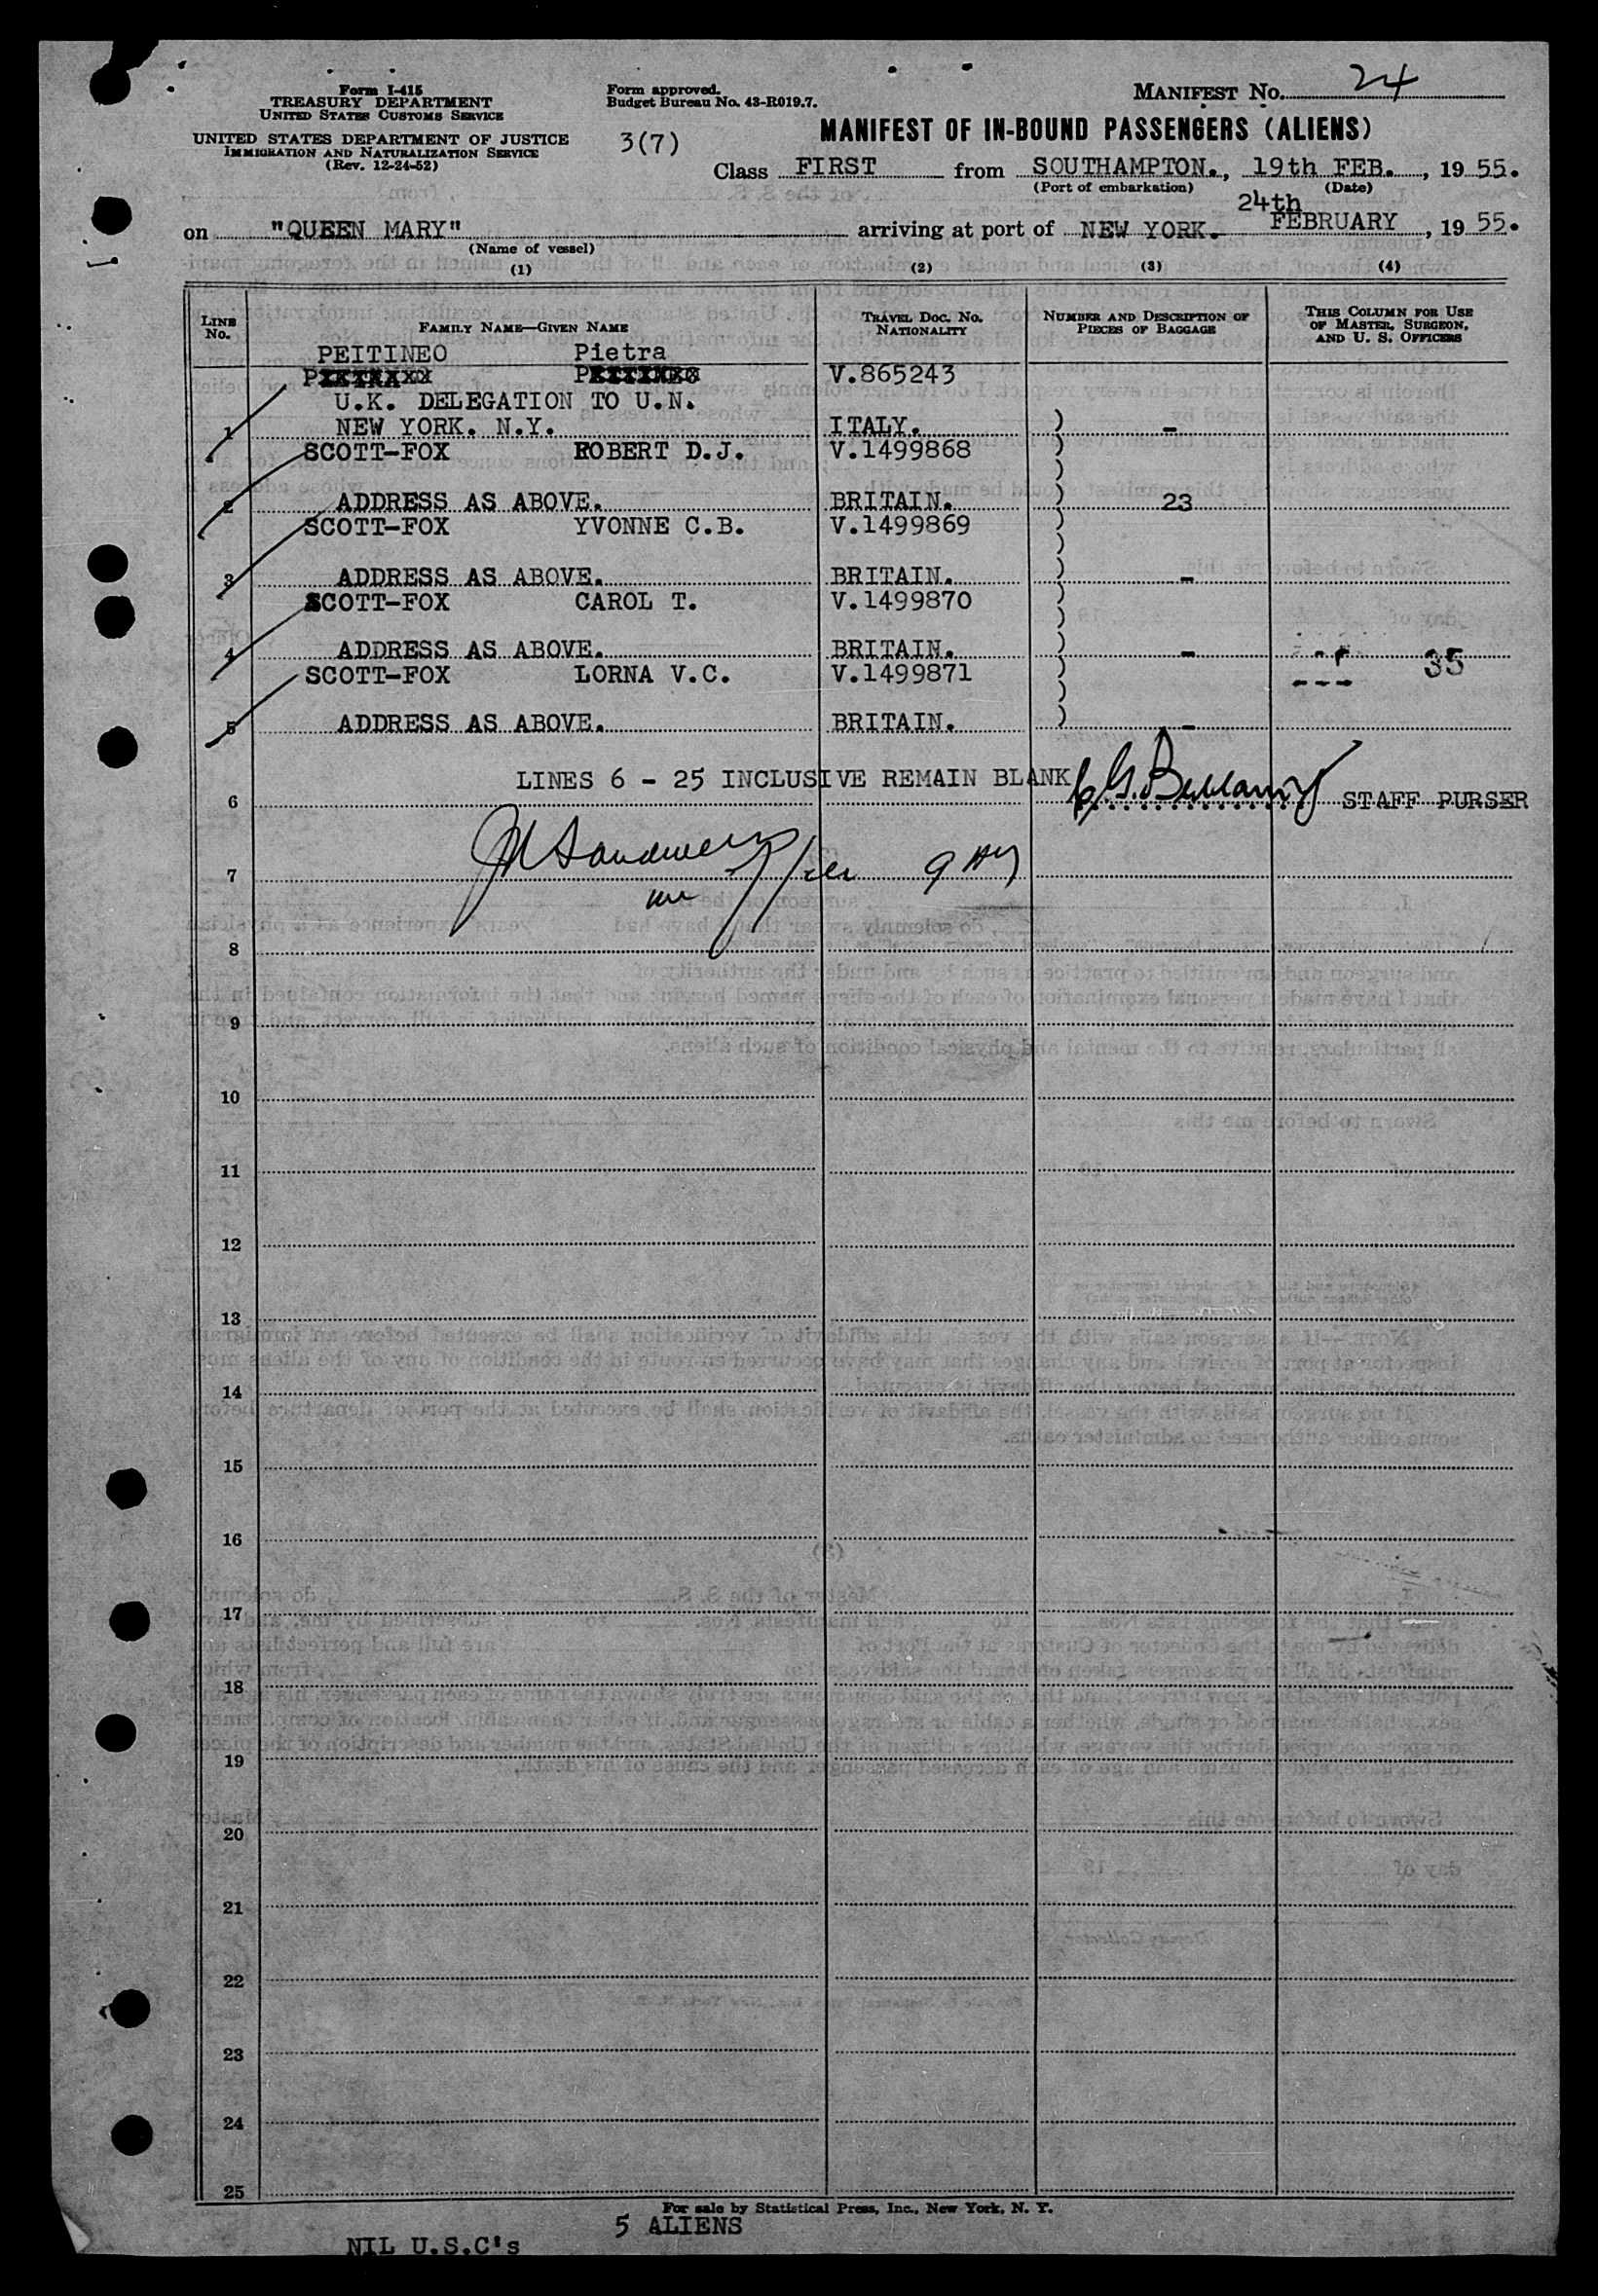 Form I-415
TREASURY DEPARTMENT
UNITED STATES CUSTOMS SERVICE
UNITED STATES DEPARTMENT OF JUSTICE
IMMIGRATION AND NATURALIZATION SERVICE
(Rev. 12-24-52)
Form approved.
Budget Bureau No. 43-R019.7.
3(7)
MANIFEST NO. 24
MANIFEST OF IN-BOUND PASSENGERS (ALIENS)
Class FIRST from SOUTHAMPTON., 19th FEB., 19 55.
(Port of embarkation) (Date)
on "QUEEN MARY" arriving at port of NEW YORK. 24th FEBRUARY, 19 55.
(Name of vessel)
(1) (2) (3) (4)
LINE NO.
FAMILY NAME—GIVEN NAME
TRAVEL DOC. NO. NATIONALITY
NUMBER AND DESCRIPTION OF PIECES OF BAGGAGE
THIS COLUMN FOR USE OF MASTER, SURGEON, AND U. S. OFFICERS
PEITINEO Pietra
V.865243
U.K. DELEGATION TO U.N.
1 NEW YORK. N.Y. ITALY. ) -
SCOTT-FOX ROBERT D.J. V.1499868 )
2 ADDRESS AS ABOVE. BRITAIN. ) 23
SCOTT-FOX YVONNE C.B. V.1499869 )
3 ADDRESS AS ABOVE. BRITAIN. ) -
SCOTT-FOX CAROL T. V.1499870 )
4 ADDRESS AS ABOVE. BRITAIN. ) - 35
SCOTT-FOX LORNA V.C. V.1499871 )
5 ADDRESS AS ABOVE. BRITAIN. ) -
LINES 6 - 25 INCLUSIVE REMAIN BLANK
6 C.G. Bellamy STAFF PURSER
7
8
9
10
11
12
13
14
15
16
17
18
19
20
21
22
23
24
25
For sale by Statistical Press, Inc., New York, N. Y.
5 ALIENS
NIL U.S.C's